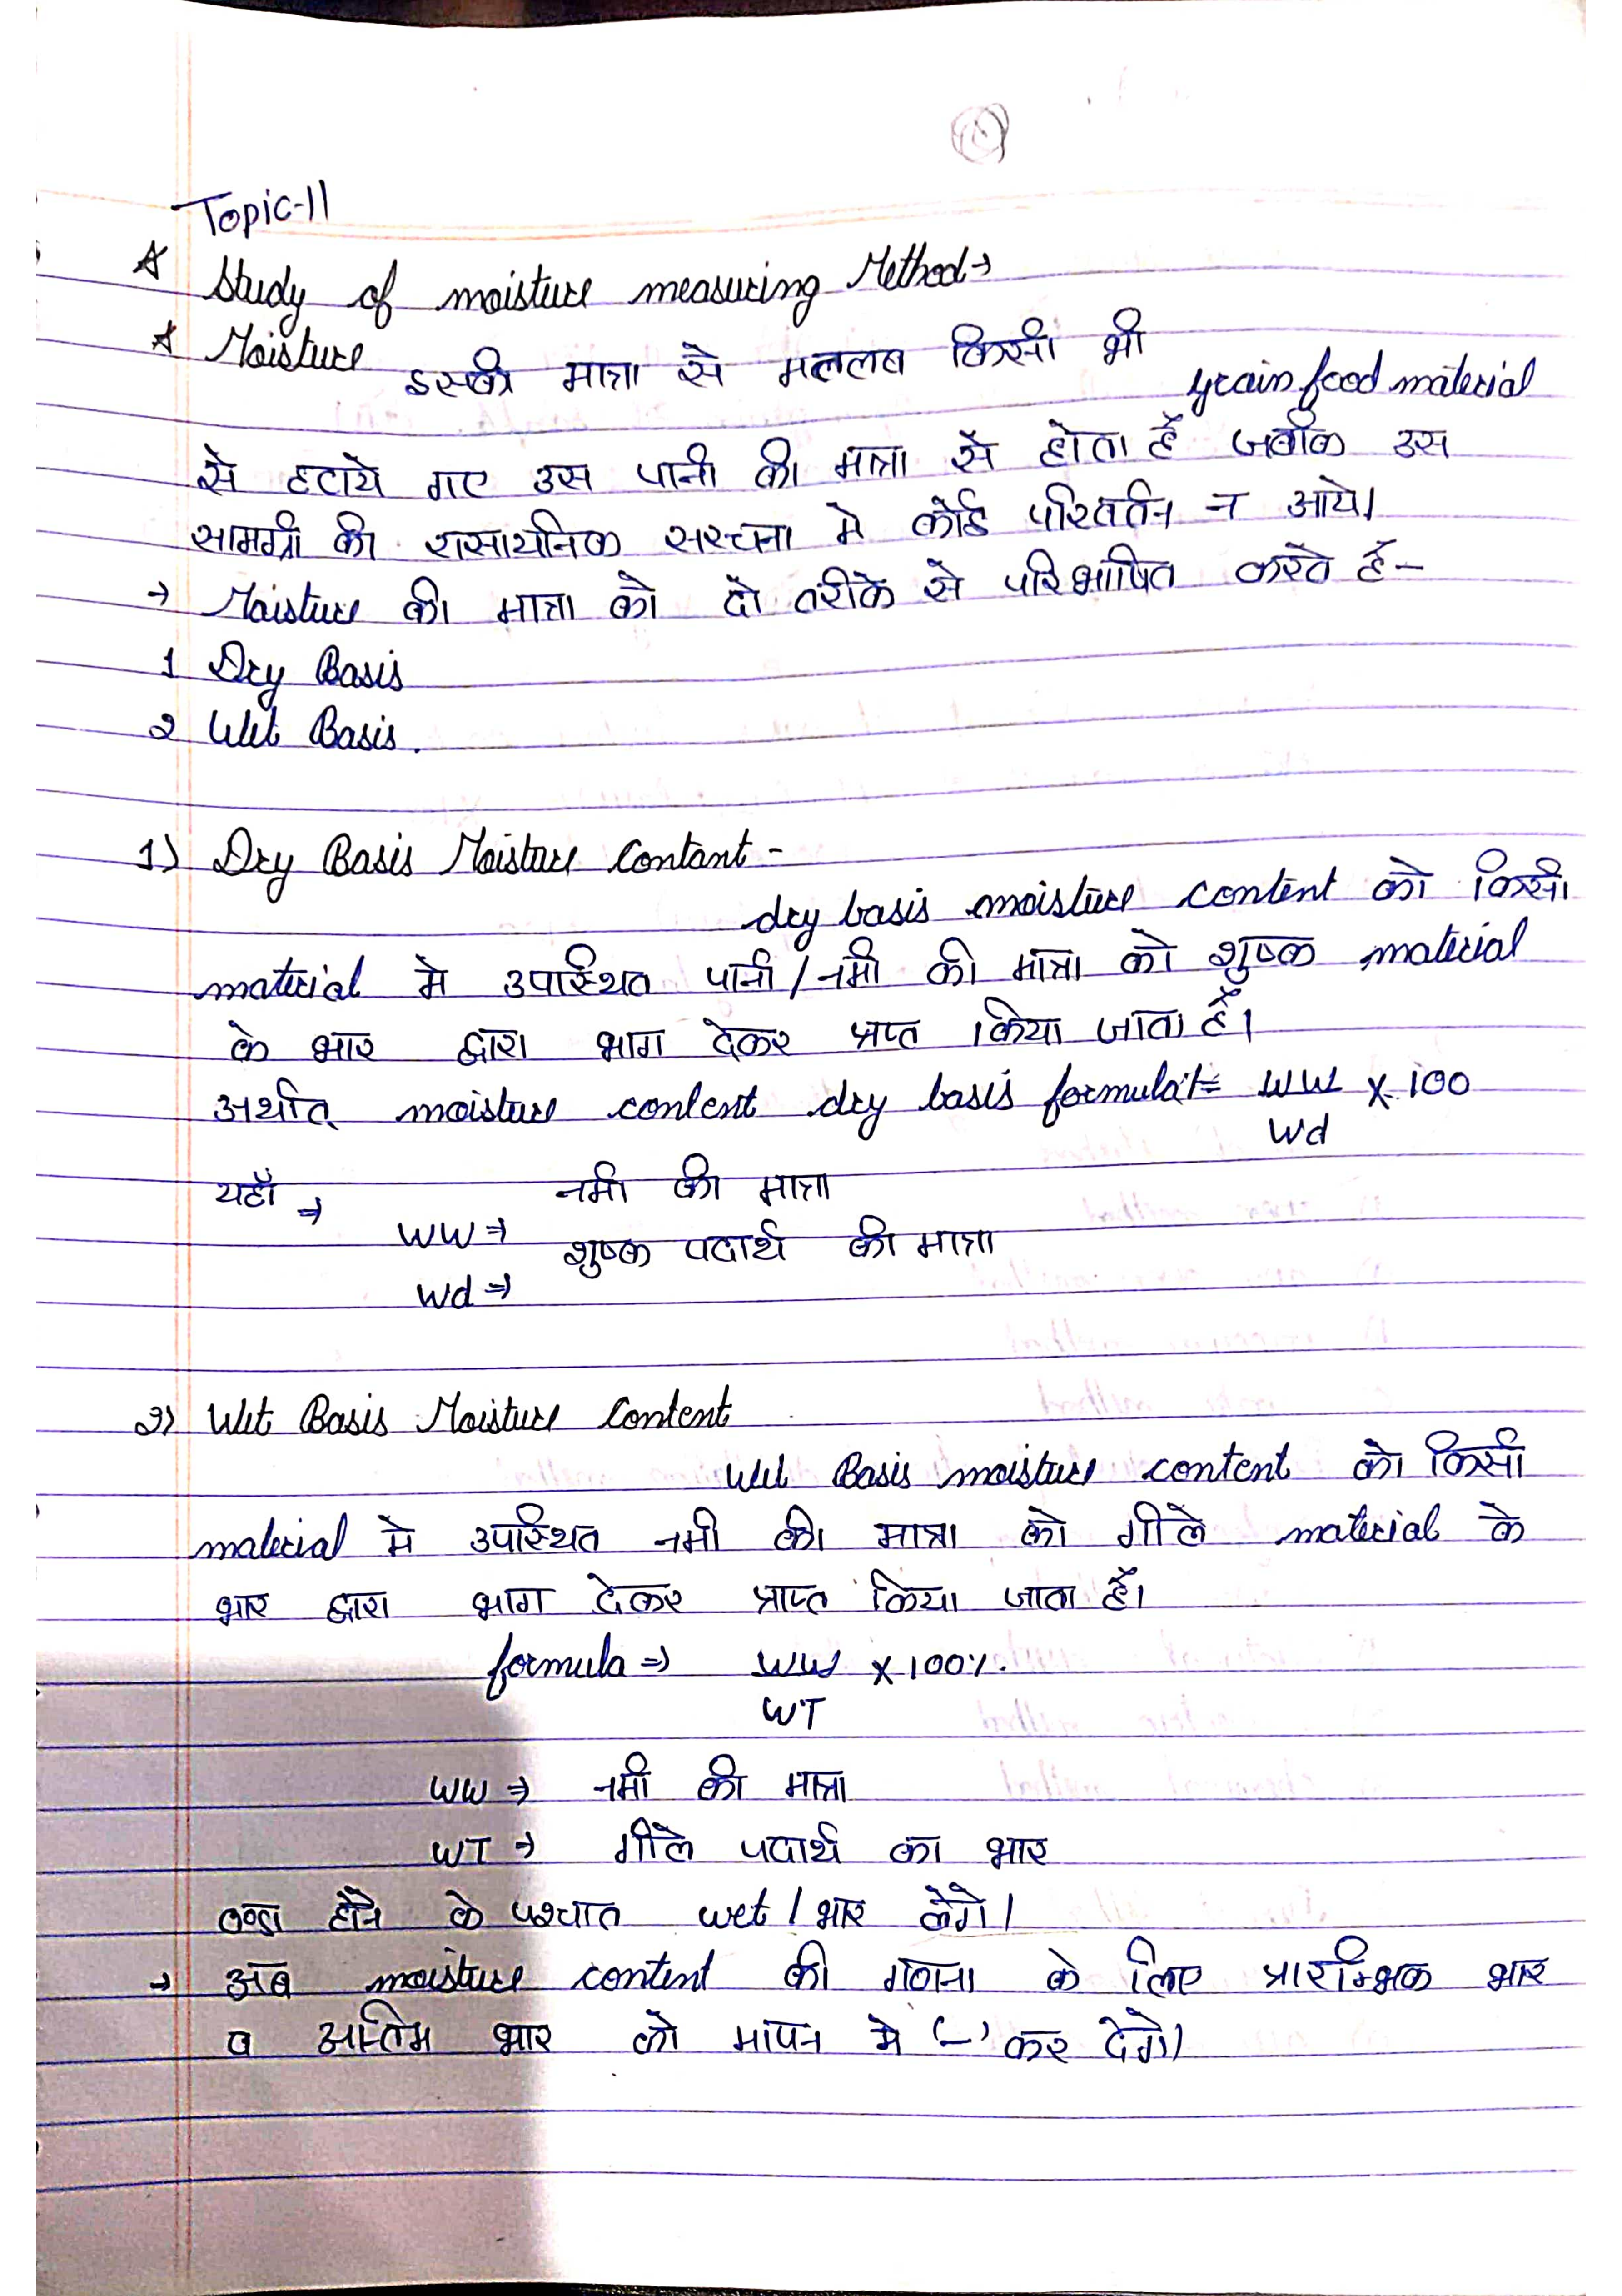 Topic-11
☆ Study of moisture measuring Method→
☆ Moisture इसकी मात्रा से मतलब किसी भी grain food material
से हटाये गए उस पानी की मात्रा से होता है जबकि उस
सामग्री की रासायनिक सरचना मे कोई परिवर्तन न आये।
→ Moisture की मात्रा को दो तरीके से परिभाषित करते हैं-
1 Dry Basis
2 Wet Basis.
1) Dry Basis Moisture Contant -
dry basis moisture content को किसी
material मे उपस्थित पानी/नमी की मात्रा को शुष्क material
के भार द्वारा भाग देकर प्रप्त किया जाता है।
अर्थात् moisture content dry basis formula:= WW x 100
Wd
यहाँ ⇒ नमी की मात्रा
WW ⇒ शुष्क पदार्थ की मात्रा
Wd ⇒
2) Wet Basis Moisture Content
Wet Basis moisture content को किसी
material मे उपस्थित नमी की मात्रा को गीले material के
भार द्वारा भाग देकर प्राप्त किया जाता है।
formula ⇒ WW x 100%.
WT
WW ⇒ नमी की मात्रा
WT ⇒ गीले पदार्थ का भार
ठण्डा होने के पश्चात wet / भार लेगे।
→ अब moisture content की गणना के लिए प्रारम्भिक भार
व अन्तिम भार को मापन मे (-) कर देगे।